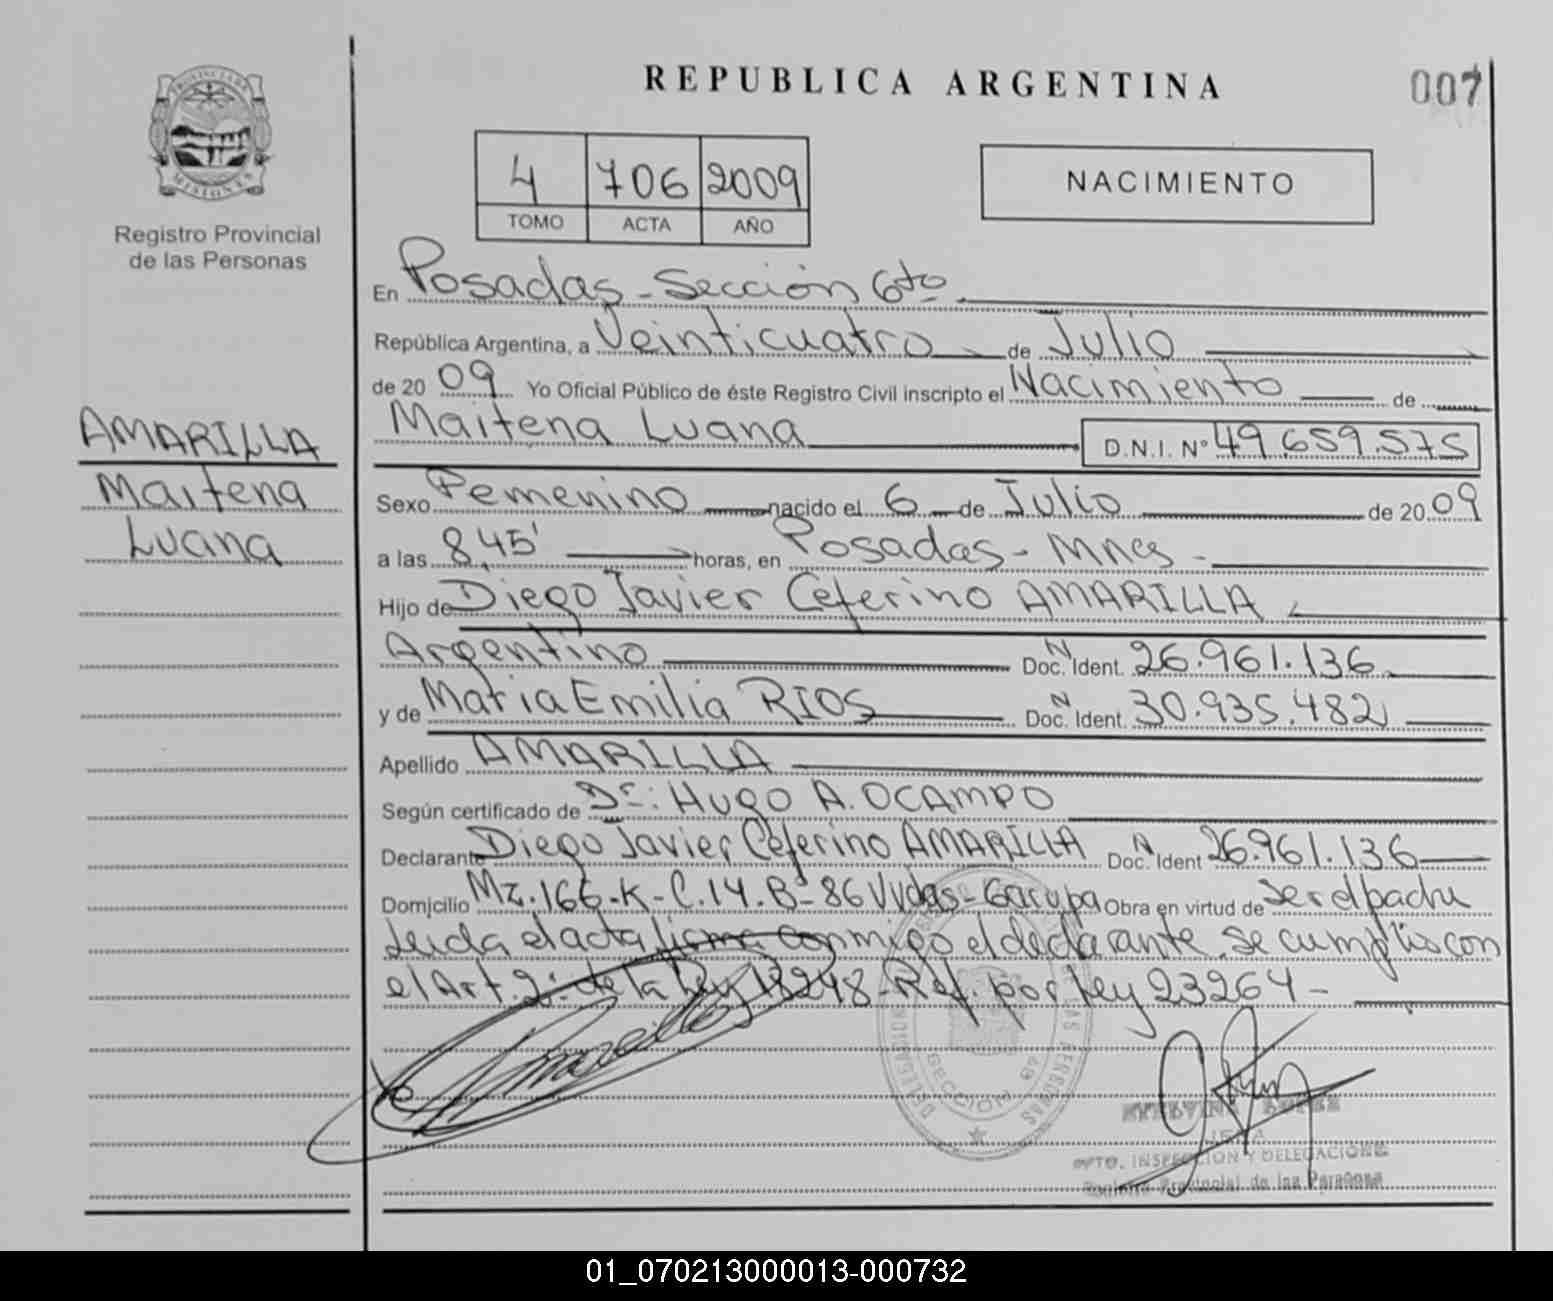 REPUBLICA ARGENTINA
007
PROVINCIA DE
MISIONES
Registro Provincial
de las Personas
4 706 2009
TOMO ACTA AÑO
NACIMIENTO
En Posadas - Sección 6to.
República Argentina, a Veinticuatro de Julio
de 20 09 Yo Oficial Público de éste Registro Civil inscripto el Nacimiento de
Maitena Luana D.N.I. N° 49.659.575
AMARILLA
Maitena
Luana
Sexo Femenino nacido el 6 de Julio de 20 09
a las 8,45' horas, en Posadas - Mnes -
Hijo de Diego Javier Ceferino AMARILLA
Argentino Doc. N Ident. 26.961.136
y de Maria Emilia RIOS Doc. N Ident. 30.935.482
Apellido AMARILLA
Según certificado de Dr: HUGO A. OCAMPO
Declarante Diego Javier Ceferino AMARILLA Doc. N Ident 26.961.136
Domicilio Mz. 166-K-C.14.B°-86 Vvdas-Garupa Obra en virtud de ser el padre
Leida el acta firma conmigo el declarante. Se cumplio con
el Art. 2: de la Ley 18248-Ref. por Ley 23264 -
DELEGACION
LAS PERSONAS
SECCION 6ª
LOPEZ
JEFA
DPTO. INSPECCION Y DELEGACIONES
Registro Provincial de las Personas
01_070213000013-000732